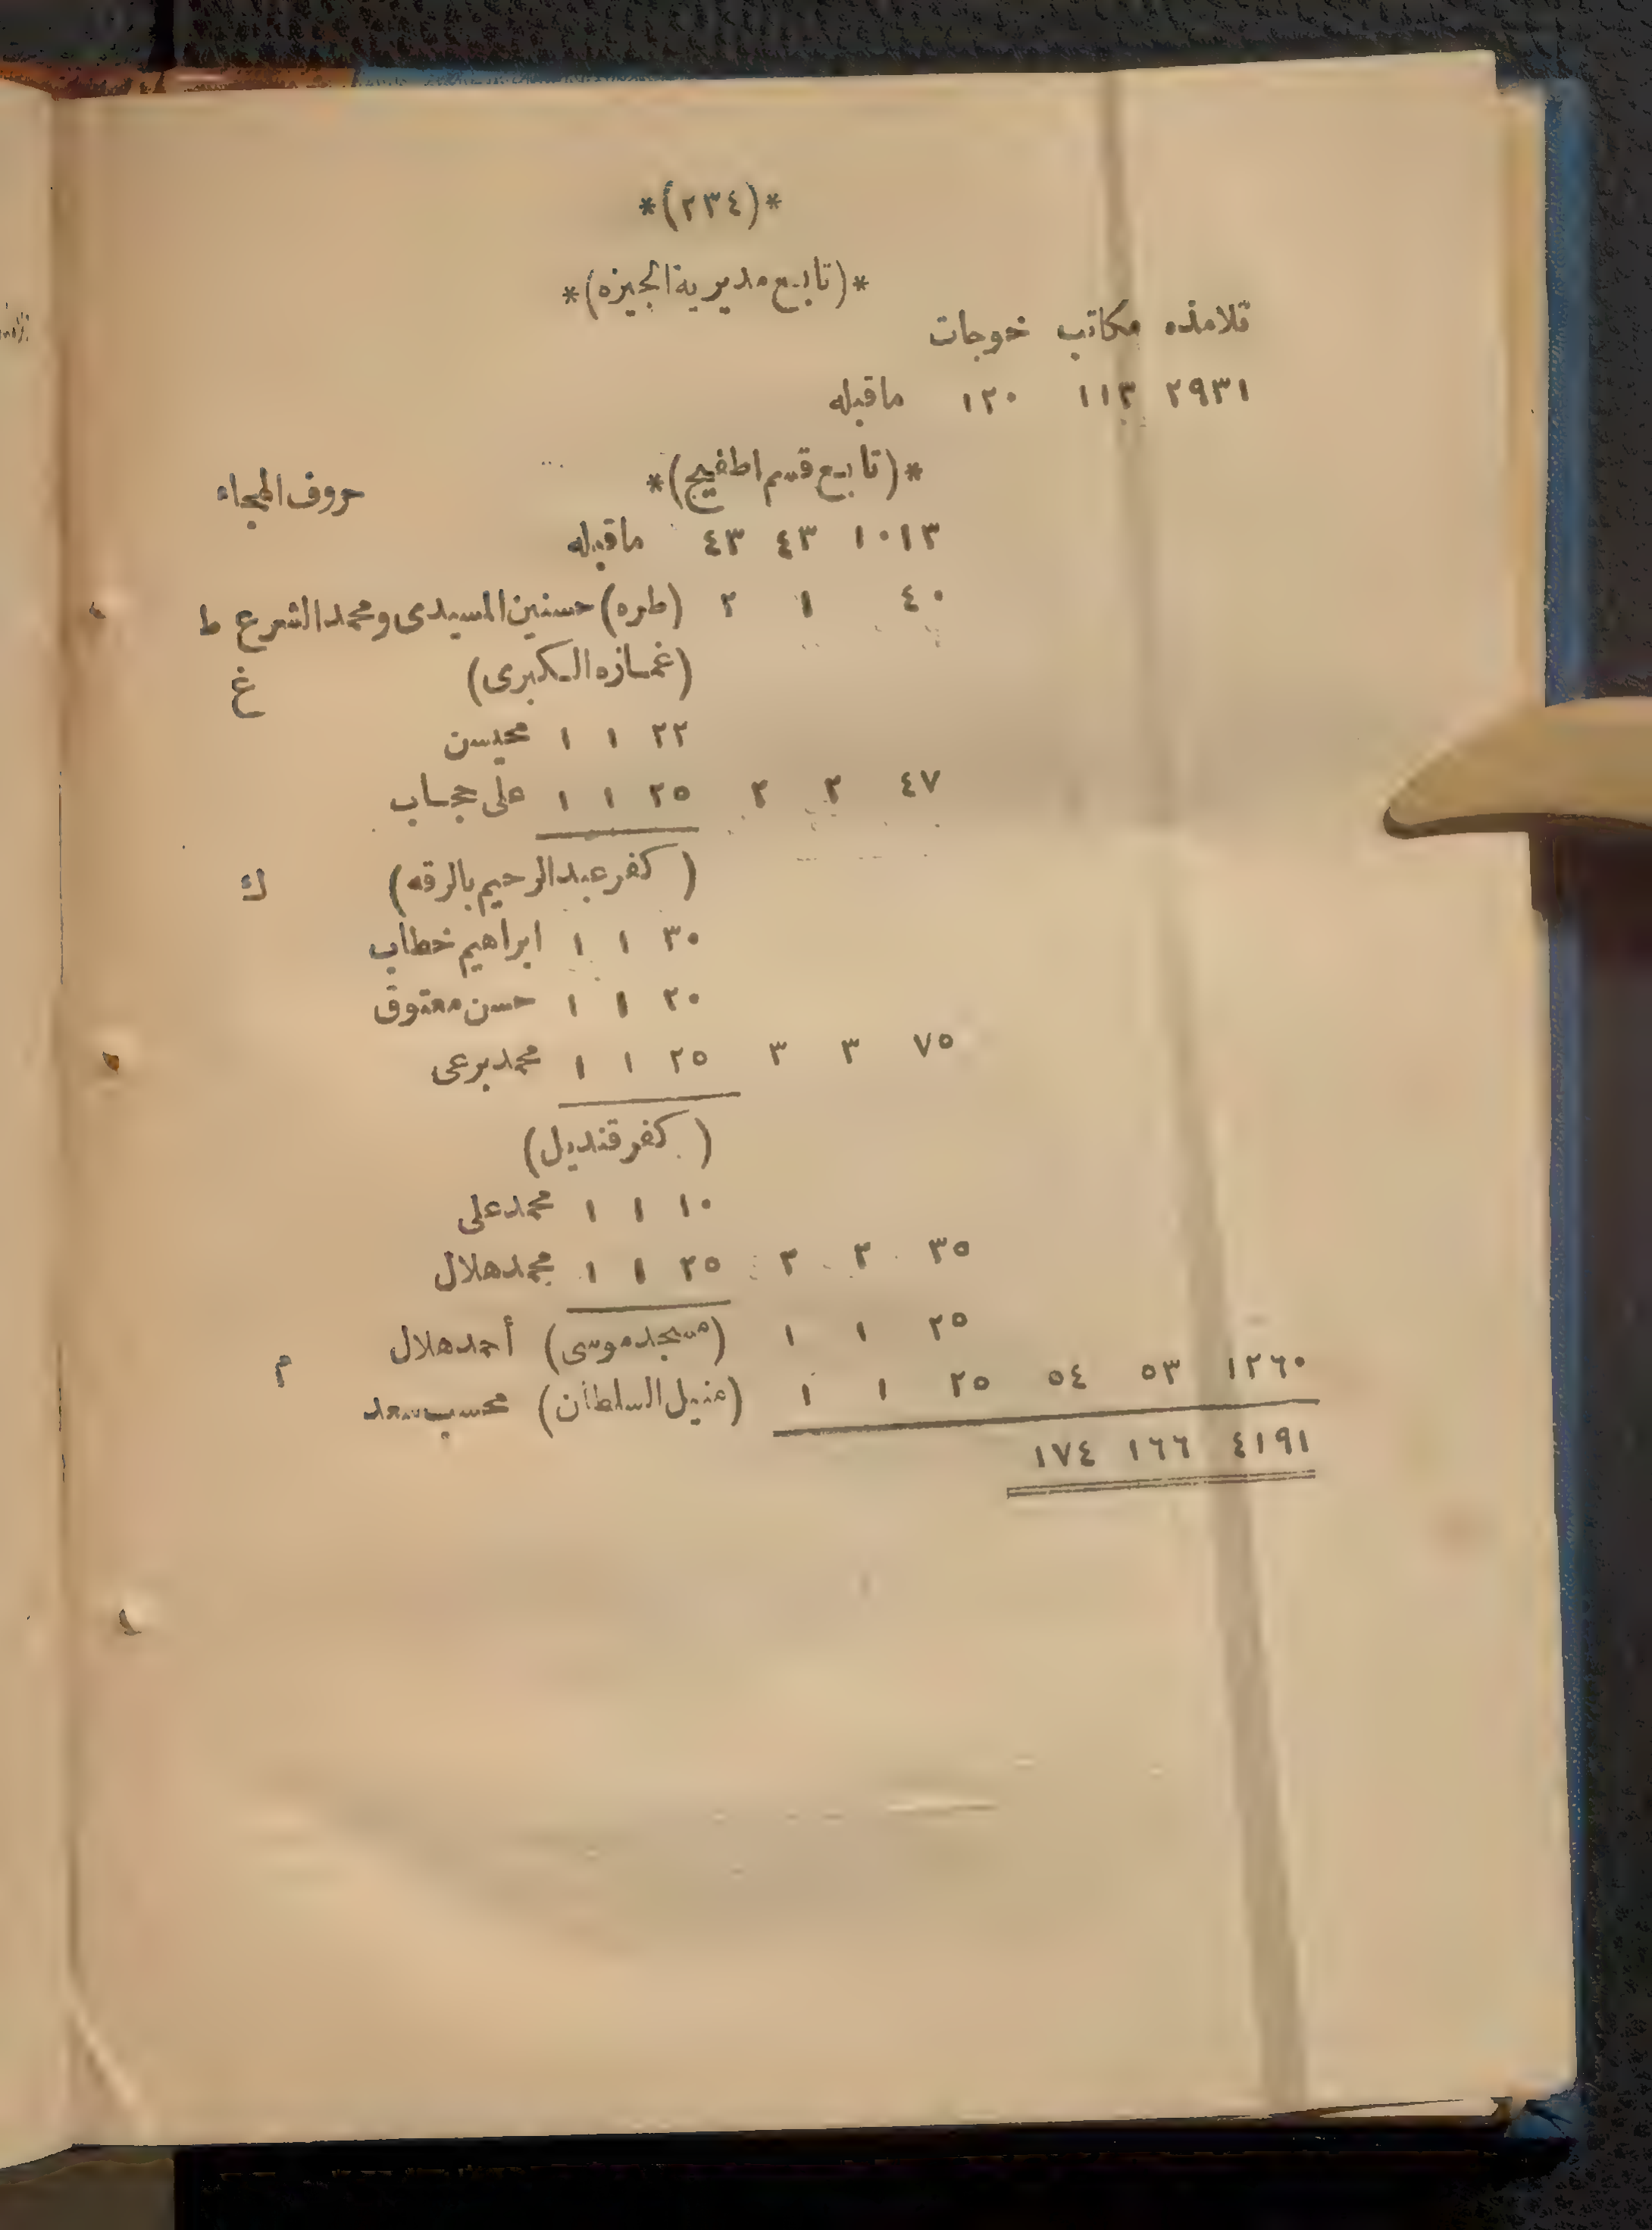 *(٢٣٤)*
*(تابع مديرية الجيزه)*
تلامذه مكاتب خوجات
٢٩٣١ ١١٣ ١٢٠ ماقبله
*(تابع قسم اطفيح)* حروف الهجاء
١٠١٣ ٤٣ ٤٣ ماقبله
٤٠ ١ ٢ (طره) حسنين المسيدى ومحمد الشرع ط
(غمازه الكبرى) غ
٢٢ ١ ١ محيسن
٤٧ ٢ ٢ ٢٥ ١ ١ على حجاب
(كفر عبد الرحيم بالرقه) ك
٣٠ ١ ١ ابراهيم خطاب
٢٠ ١ ١ حسن معتوق
٧٥ ٣ ٣ ٢٥ ١ ١ محمد برعى
(كفر قنديل)
١٠ ١ ١ محمد على
٣٥ ٢ ٢ ٢٥ ١ ١ محمد هلال
٢٥ ١ ١ (مسجد موسى) أحمد هلال م
١٢٦٠ ٥٣ ٥٤ ٢٥ ١ ١ (منيل السلطان) محسب سعد
٤١٩١ ١٦٦ ١٧٤